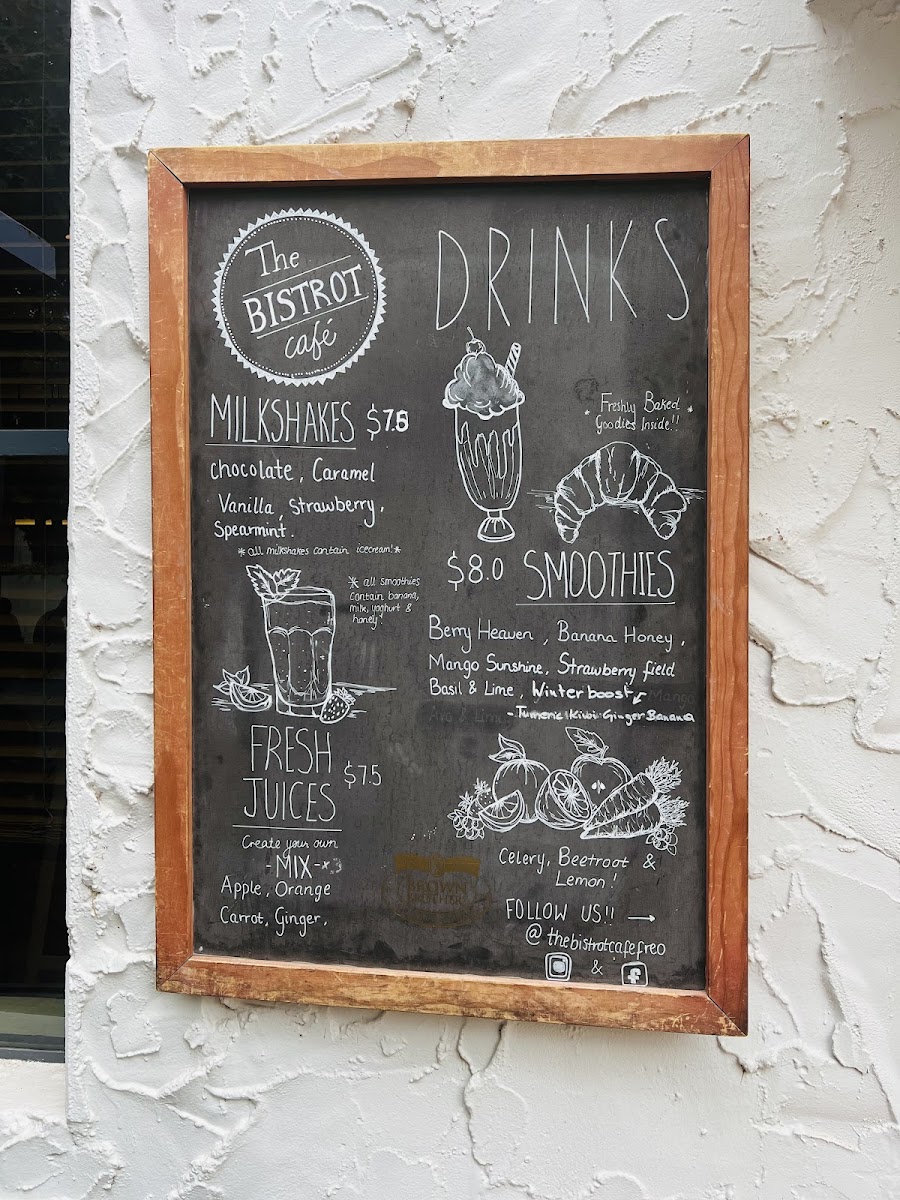 The
BISTROT
café
DRINKS
MILKSHAKES
chocolate, Caramel
Vanilla, Strawberry,
Spearmint.
*all milkshakes contain icecream!*
Freshly Baked
Goodies Inside!!
* all smoothies
contain banana,
milk, yoghurt &
honey
$8.0 SMOOTHIES
Berry Heaven, Banana Honey,
Mango Sunshine, Strawberry field
Basil & Lime, Winterboost
- Tumeric Kiwi Ginger Banana
FRESH
JUICES $7.5
Create your own
- MIX - x3
Apple, Orange
Carrot, Ginger,
Celery, Beetroot &
Lemon!
FOLLOW US!! →
@thebistrotcafefreo
&
BROWN